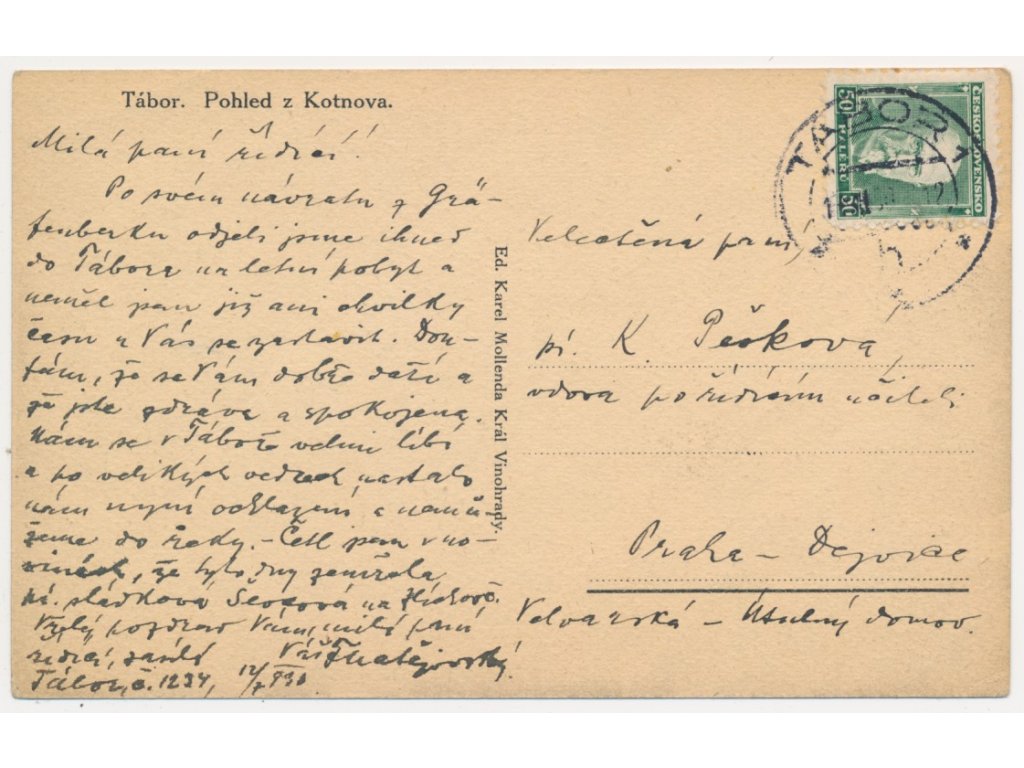 Tábor. Pohled z Kotnova.
Milá paní řídící!
Po svém návratu z Grä-
fenberku odjeli jsme ihned
do Tábora na letní pobyt a
neměl jsem již ani chvilky
času u Vás se zastavit. Dou-
fám, že se Vám dobře daří a
že jste zdráva a spokojena.
Nám se v Táboře velmi líbí
a po velikých vedrech nastalo
nám nyní ochlazení a nemů-
žeme do řeky. – Četl jsem v no-
vinách, že tyto dny zemřela
pí. sládková na
Vřelý pozdrav Vám, milá paní
řídící, zasílá Váš
Tábor, č. 1234, 12/7
Ed. Karel Mollenda Král Vinohrady.
ČESKOSLOVENSKO
50 HALÉŘŮ 50
TÁBOR 1
Velectěná paní,
pí. K. Pešková,
vdova po řídícím učiteli
Praha – Dejvice
Velvarská – Útulný domov.